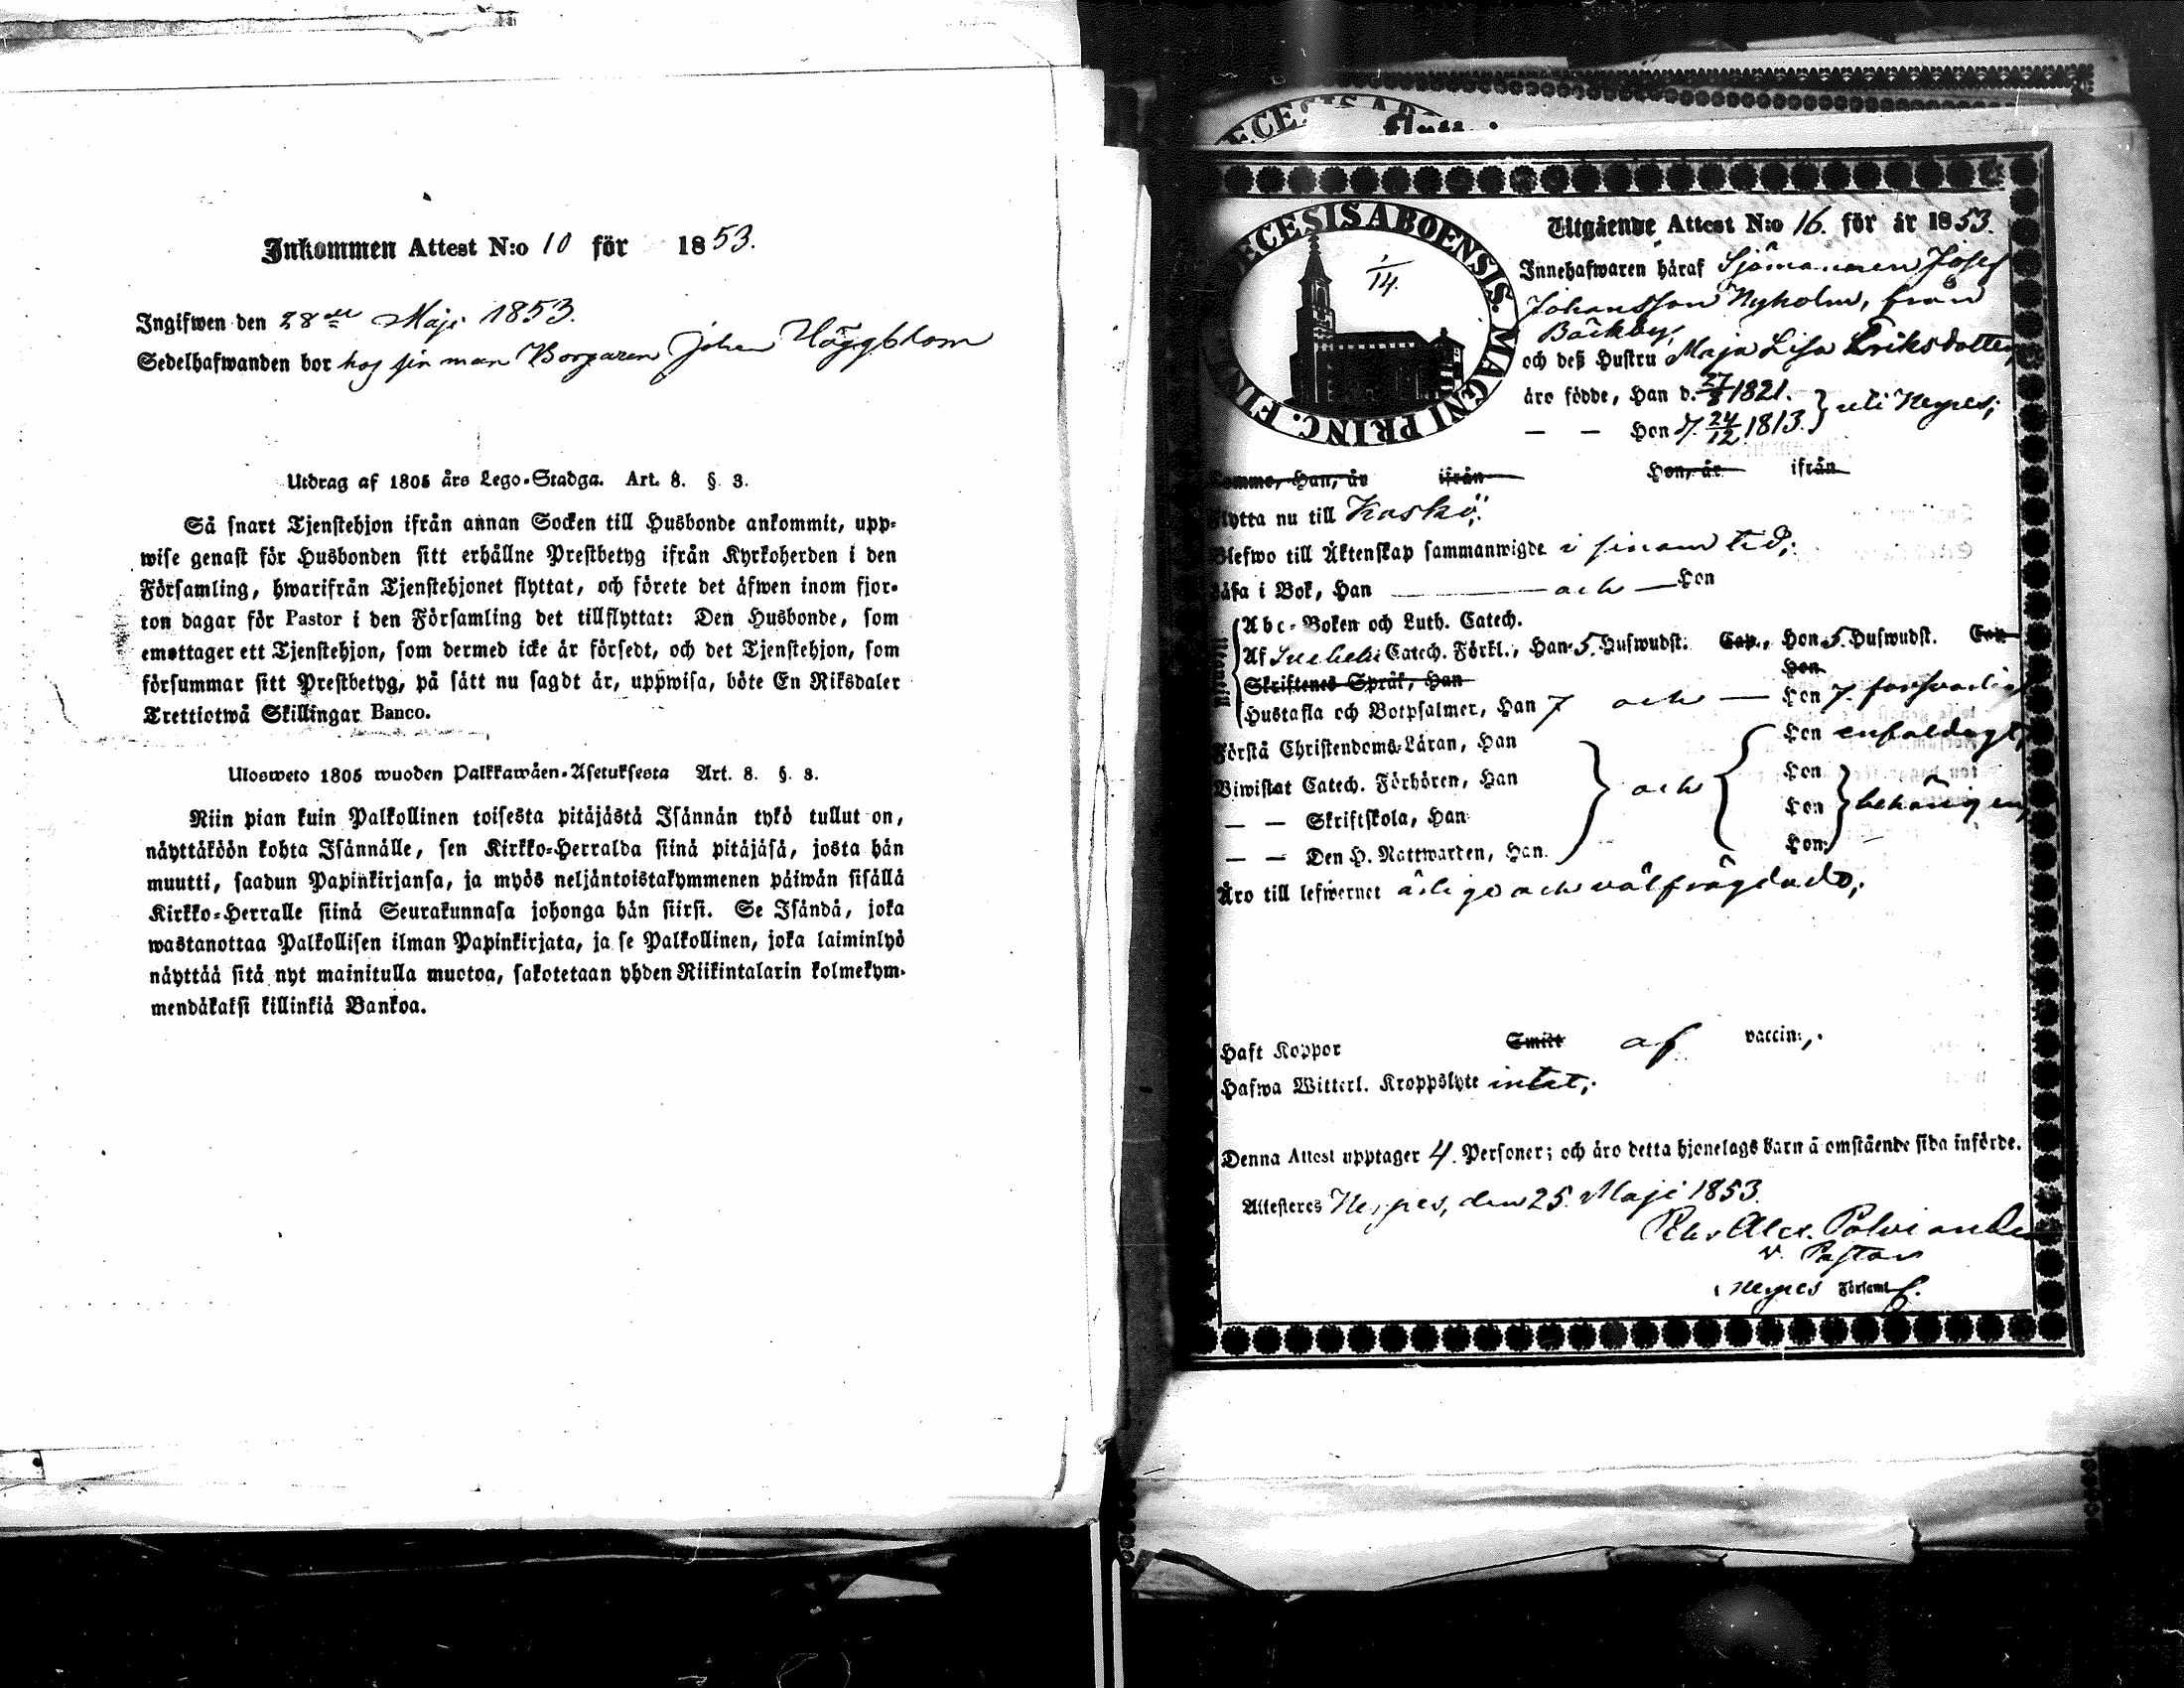 Inkommen Attest N:o 10 för 1853.
Ingifwen den 28de Maji 1853.
Sedelhafwanden bor hos sin man Borgaren Johan Häggblom
Utdrag af 1805 års Lego-Stadga. Art. 8. §. 3.
Så snart Tjenstehjon ifrån annan Socken till Husbonde ankommit, upp-
wise genast för Husbonden sitt erhållne Prestbetyg ifrån Kyrkoherden i den
Församling, hwarifrån Tjenstehjonet flyttat, och förete det äfwen inom fjor-
ton dagar för Pastor i den Församling det tillflyttat: Den Husbonde, som
emottager ett Tjenstehjon, som dermed icke är försedt, och det Tjenstehjon, som
försummar sitt Prestbetyg, på sätt nu sagdt är, uppwisa, böte En Riksdaler
Trettiotwå Skillingar Banco.
Ulosweto 1805 wuoden Palkkawäen-Asetuksesta Art. 8. §. 3.
Niin pian kuin Palkollinen toisesta pitäjästä Isännän tykö tullut on,
näyttäköön kohta Isännälle, sen Kirkko-Herralda siinä pitäjäsä, josta hän
muutti, saadun Papinkirjansa, ja myös neljäntoistakymmenen päiwän sisällä
Kirkko-Herralle siinä Seurakunnasa johonga hän siirsi. Se Isändä, joka
wastanottaa Palkollisen ilman Papinkirjata, ja se Palkollinen, joka laiminlyö
näyttää sitä nyt mainitulla muotoa, sakotetaan yhden Riikintalarin kolmekym-
mendäkaksi killinkiä Bankoa.
ECESIS ABOENSIS. MAGNI PRINC. FIN
1/14.
Utgående Attest N:o 16. för år 1853.
Innehafwaren häraf Sjömannen Josef
Johansson Nyholm, från
Bäckby,
och deß Hustru Maja Lisa Eriksdotter,
äro födde, Han d. 27/8 1821. } uti Nerpes;
— — Hon d. 24/12 1813.
komme, Han, år ifrån Hon, år ifrån
flytta nu till Kaskö;
Blefwo till Äktenskap sammanwigde i sinom tid;
Läsa i Bok, Han — och — Hon
Abc-Boken och Luth. Catech.
Af Svebelii Catech. Förkl., Han 5. Hufwudst. Cap., Hon 5. Hufwudst. Cap
Skriftenes Språk, Han Hon
Hustafla och Botpsalmer, Han 7 och — Hon 7. försvarligt
Förstå Christendoms-Läran, Han Hon enfaldigt,
Biwistat Catech. Förhören, Han } och { Hon
— — Skriftskola, Han Hon } behörigen,
— — Den H. Nattwarden, Han Hon
Äro till lefwernet ärlige och välfrägdade;
Haft Koppor Smitt af vaccin:,.
Hafwa Witterl. Kroppslyte intet;
Denna Attest upptager 4. Personer; och äro detta hjonelags barn å omstående sida införde.
Attesteres Nerpes, den 25. Maji 1853.
Alex.
v. Pastor
i Nerpes Församl.